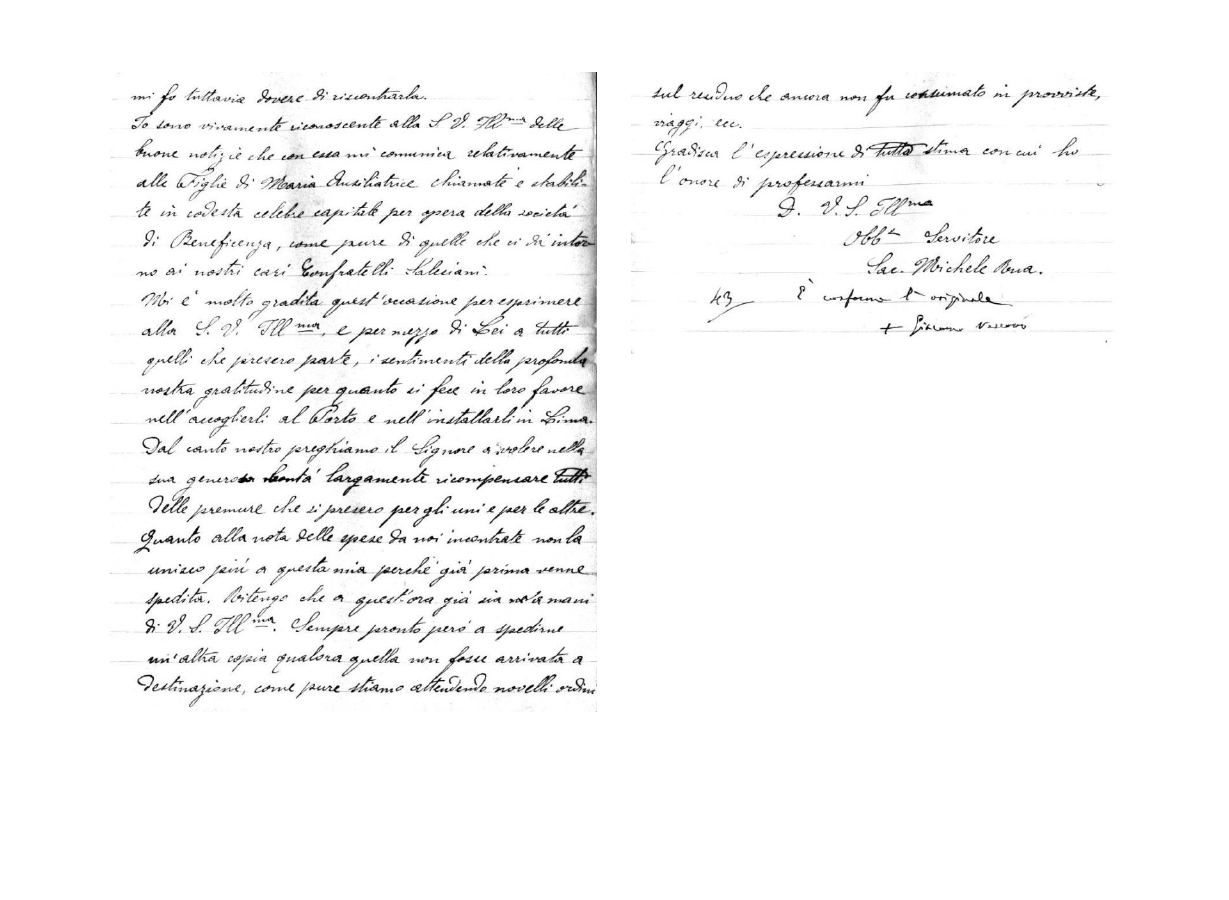 mi fo tuttavia dovere di riscontrarla.
Io sono vivamente riconoscente alla S. V. Ill.ma delle
buone notizie che con essa mi comunica relativamente
alle Figlie di Maria Ausiliatrice chiamate e stabili-
te in codesta celebre capitale per opera della società
di Beneficenza, come pure di quelle che ci dà intor
no ai nostri cari Confratelli Salesiani.
Mi è molto gradita quest'occasione per esprimere
alla S. V. Ill.ma, e per mezzo di Lei a tutti
quelli che presero parte, i sentimenti della profonda
nostra gratitudine per quanto si fece in loro favore
nell'accoglierli al Porto e nell'installarli in Lima.
Dal canto nostro preghiamo il Signore a volere nella
sua generosa bontà largamente ricompensare tutti
delle premure che si presero per gli uni e per le altre.
Quanto alla nota delle spese da noi incontrate non la
unisco più a questa mia perchè già prima venne
spedita. Ritengo che a quest'ora già sia nelle mani
di V. S. Ill.ma. Sempre pronto però a spedirne
un'altra copia qualora quella non fosse arrivata a
destinazione, come pure stiamo attendendo novelli ordini
sul residuo che ancora non fu consumato in provviste,
viaggi, ecc.
Gradisca l'espressione di tutta stima con cui ho
l'onore di professarmi
D. V. S. Ill.ma
Obb.o Servitore
Sac. Michele Rua.
43 È conforme l'originale
+ Giacomo Vescovo